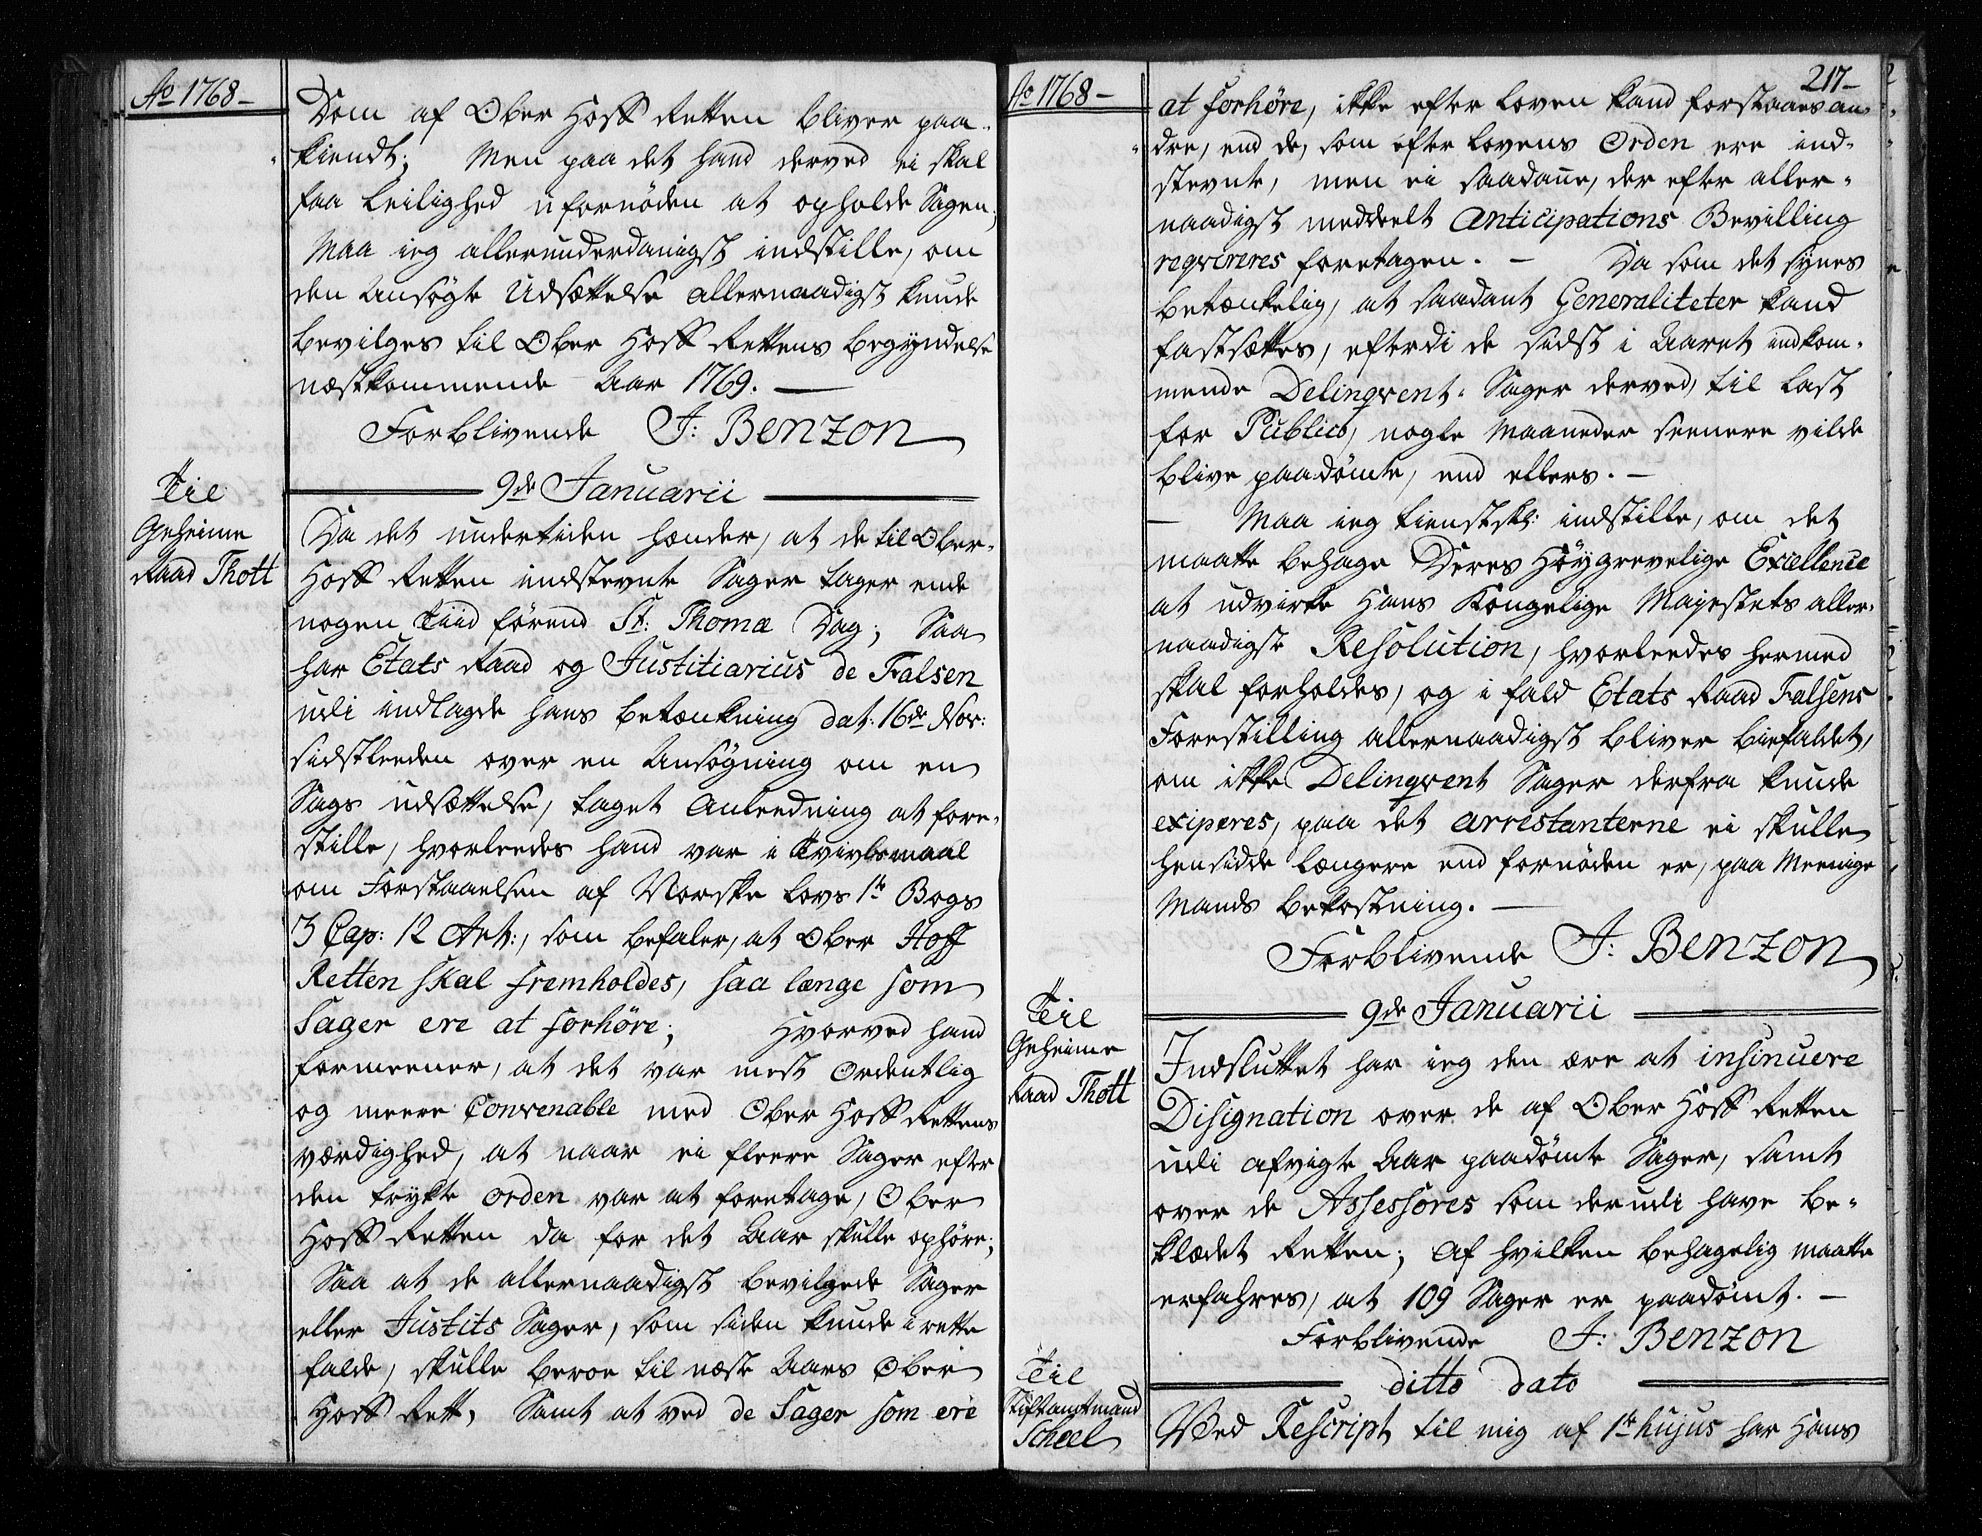 Ao 1768 –
Dom af Ober Hoff Retten bliver paa-
kiendt; Men paa det hand derved ei skal
faa Leilighed ufornöden at opholde Sagen;
Maa ieg allerunderdanigst indstille, om
den Ansögte Udsættelse allernaadigst kunde
bevilges til Ober Hoff Rettens begÿndelse
næstkommende Aar 1769. —
Forblivende J: Benzon
9de Januarii
Til
Geheime
Raad Thott
Da det undertiden hænder, at de til Ober-
Hoff Retten indstevnte Sager tager ende
nogen Tiid förend St: Thomæ Dag; Saa
har Etats Raad og Justitiarius de Falsen
udi indlagde hans betænkning dat: 16de Nov:
sidstleeden over en Ansögning om en
Sags udsættelse, taget Anleedning at fore-
stille, hvorleedes hand var i Tvivlsmaal
om Forstaaelsen af Norske Lovs 1te Bogs
3 Cap: 12 Art:, som befaler, at Ober Hoff
Retten skal fremholdes, saa længe som
Sager ere at forhöre; Hvorved hand
formeener, at det var mest Ordentlig
og meere Convenable med Ober Hoff Rettens
værdighed, at naar ei fleere Sager efter
den trykte Orden var at foretage, Ober
Hoff Retten da for det Aar skulle ophöre;
Saa at de allernaadigst bevilgede Sager
eller Justits Sager, som siden kunde i rette
falde, skulle beroe til næste Aars Ober
Hoff Rett, Samt at ved de Sager som ere
217 –
Ao 1768 –
at forhöre, ikke efter Loven kand forstaaes an-
dre, end de, som efter Lovens Orden ere ind-
stevnte, men ei saadanne, der efter aller-
naadigst meddeelt Anticipations Bevilling
reqvireres foretagen. – Da som det sÿnes
betænkelig, at saadant Generaliteter kand
fastsættes, efterdi de sidst i Aaret indkom-
mende Delinqvent-Sager derved, til Last
for Publico, nogle Maaneder seenere vilde
blive paadömte, end ellers. –
— Maa ieg tienstskl: indstille, om det
maatte behage Deres Höÿgrevelige Excellence
at udvirke Hans Kongelige Majestets aller-
naadigste Resolution, hvorleedes hermed
skal forholdes, og i fald Etats Raad Falsens
Forestilling allernaadigst bliver biefaldet,
om ikke Delinqvent Sager derfra kunde
exiperes, paa det arrestanterne ei skulle
hensidde længere end fornöden er, paa Meenige
Mands bekostning. —
Forblivende J: Benzon
9de Januarii
Til
Geheime
Raad Thott
Indsluttet har ieg den ære at insinuere
Disignation over de af Ober Hoff Retten
udi afvigte Aar paadömte Sager, samt
over de Assessores som derudi have be-
klædet Retten; Af hvilken behagelig maatte
erfahres, at 109 Sager er paadömt. –
Forblivende J: Benzon
ditto dato
Til
Stiftamtmand
Scheel
Ved Rescript til mig af 1te hujus har Hans